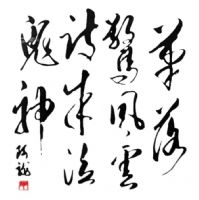 筆落
驚風雲
詩成泣
鬼神